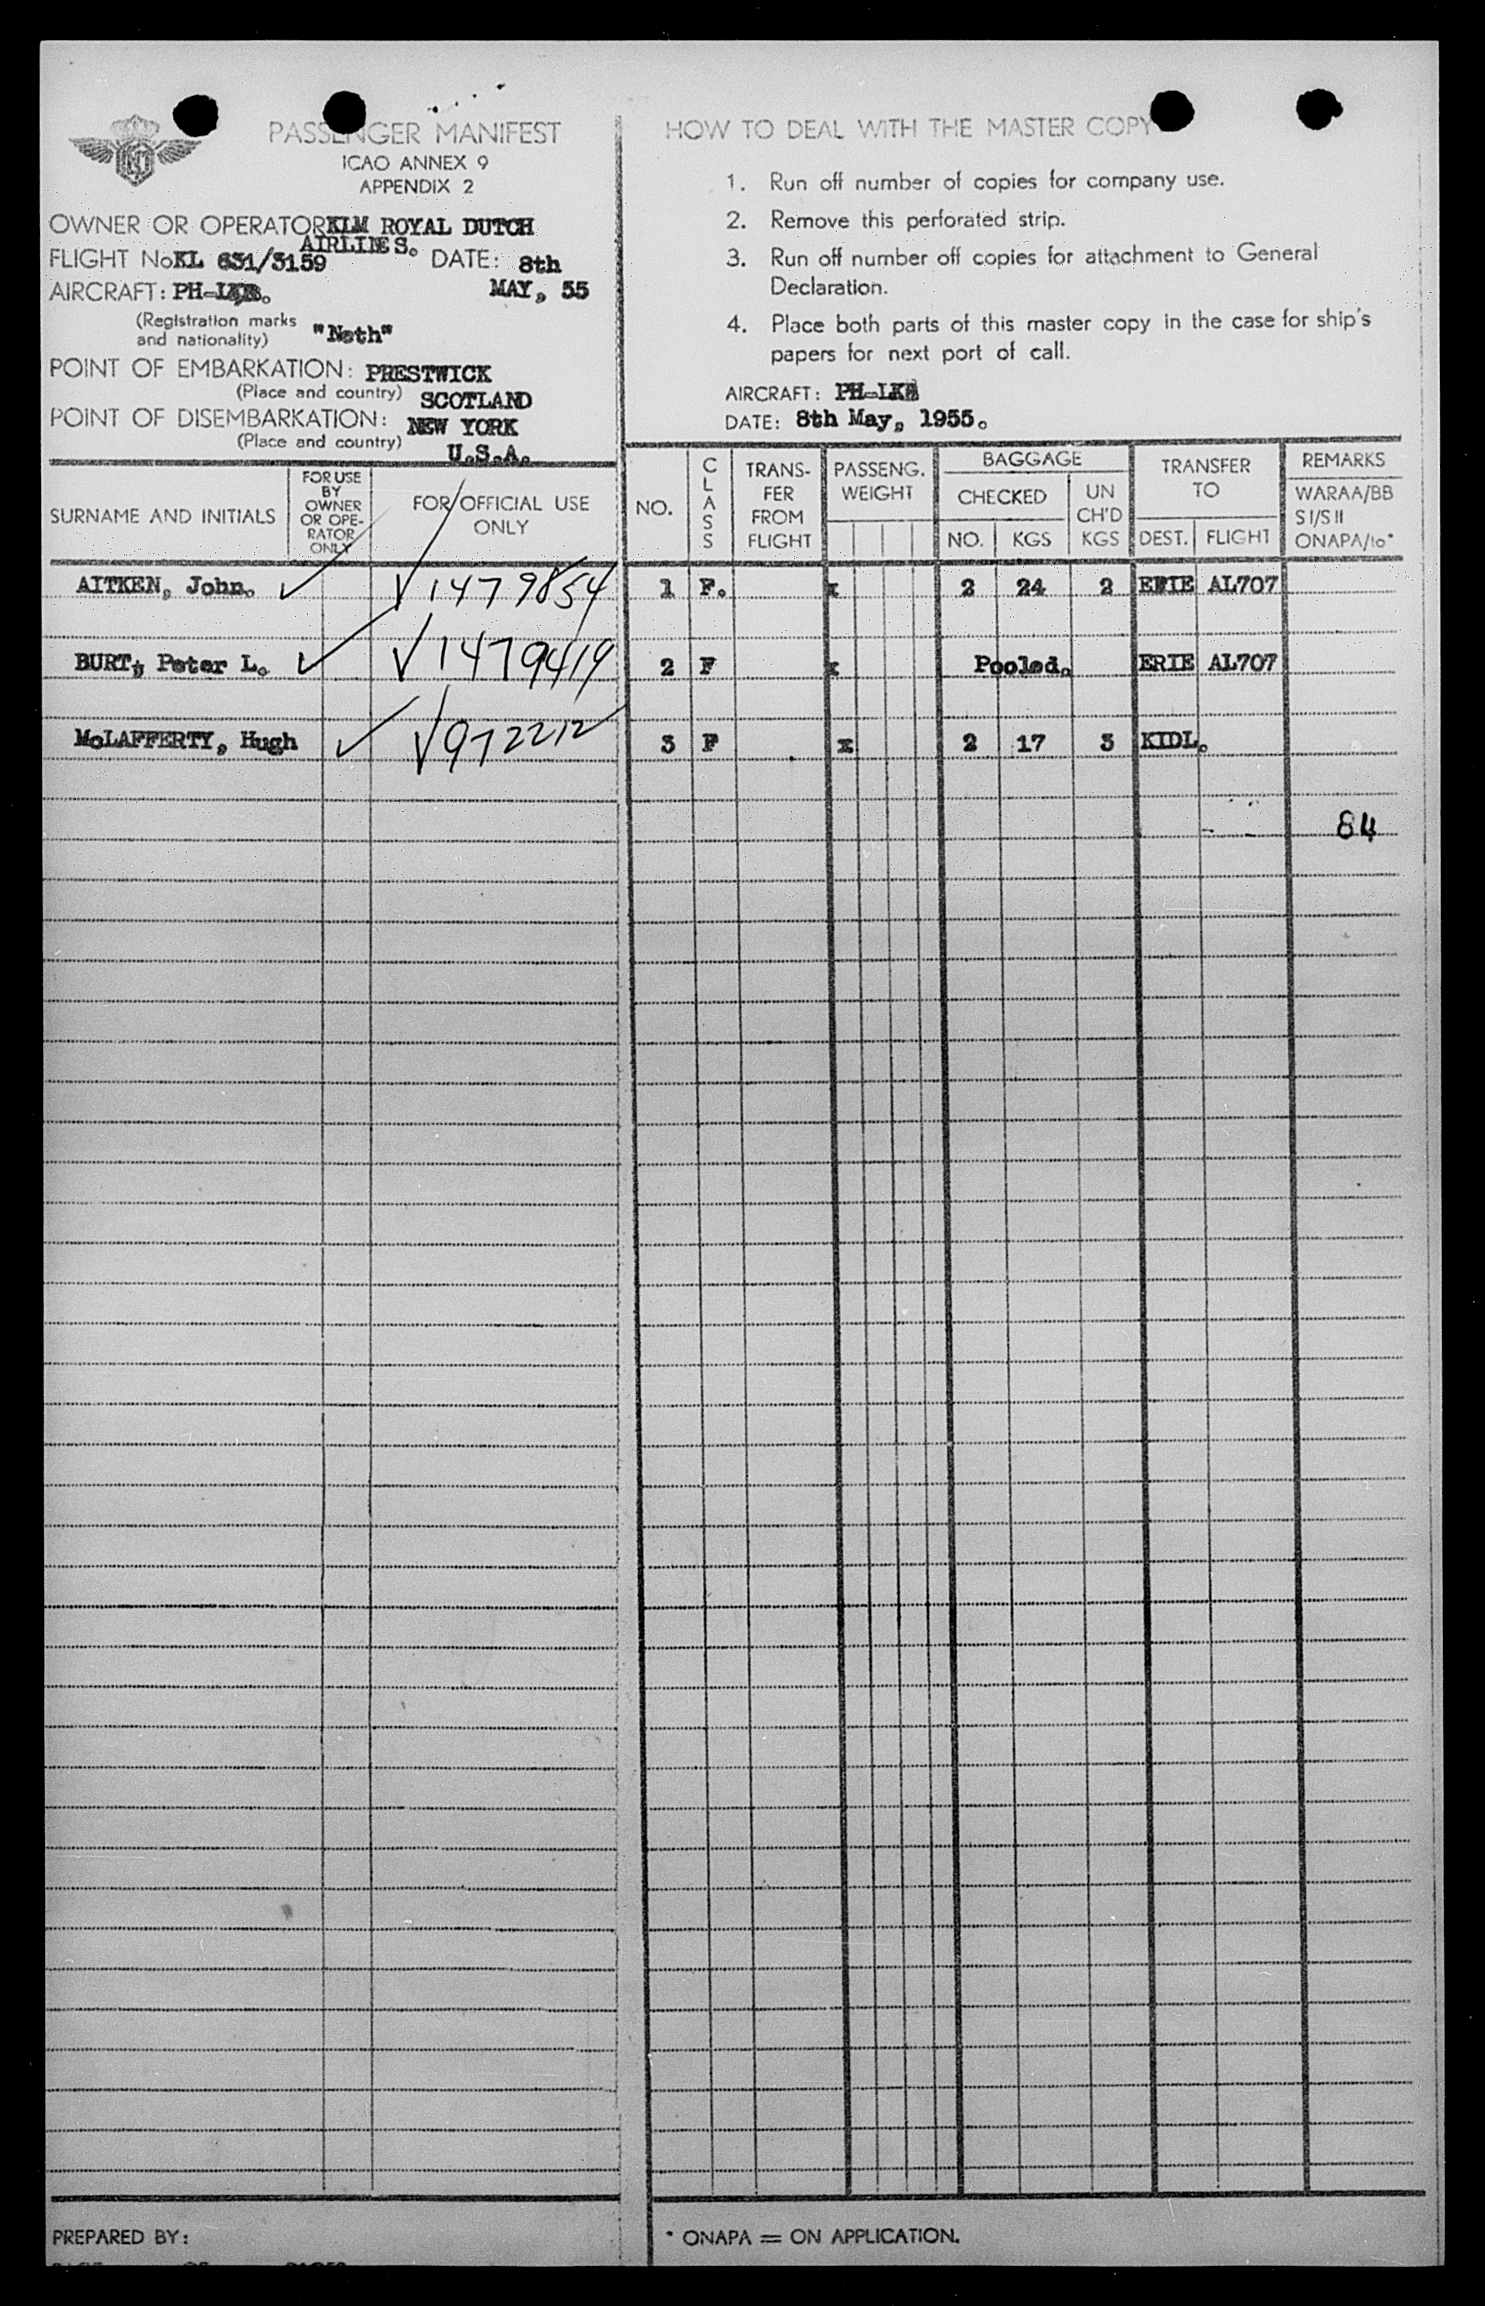 PASSENGER MANIFEST
ICAO ANNEX 9
APPENDIX 2
OWNER OR OPERATOR KLM ROYAL DUTCH
AIRLINES.
FLIGHT No KL 631/3159 DATE: 8th
AIRCRAFT: MAY, 55
(Registration marks
and nationality) "Neth"
POINT OF EMBARKATION: PRESTWICK
(Place and country) SCOTLAND
POINT OF DISEMBARKATION: NEW YORK
(Place and country) U.S.A.
HOW TO DEAL WITH THE MASTER COPY
1. Run off number of copies for company use.
2. Remove this perforated strip.
3. Run off number off copies for attachment to General
Declaration.
4. Place both parts of this master copy in the case for ship's
papers for next port of call.
AIRCRAFT: PH-LKB
DATE: 8th May, 1955.
SURNAME AND INITIALS
FOR USE
BY
OWNER
OR OPE-
RATOR
ONLY
FOR OFFICIAL USE
ONLY
NO.
CLASS
TRANS-
FER
FROM
FLIGHT
PASSENG.
WEIGHT
BAGGAGE
CHECKED
NO. KGS
UN
CH'D
KGS
TRANSFER
TO
DEST. FLIGHT
REMARKS
WARAA/BB
S I/S II
ONAPA/to*
AITKEN, John. ✓ ✓ 1479854 1 F. x 2 24 2 ERIE AL707
BURT, Peter L. ✓ ✓ 1479419 2 F x Pooled. ERIE AL707
McLAFFERTY, Hugh ✓ ✓ 972212 3 F x 2 17 3 KIDL.
84
PREPARED BY:
* ONAPA = ON APPLICATION.